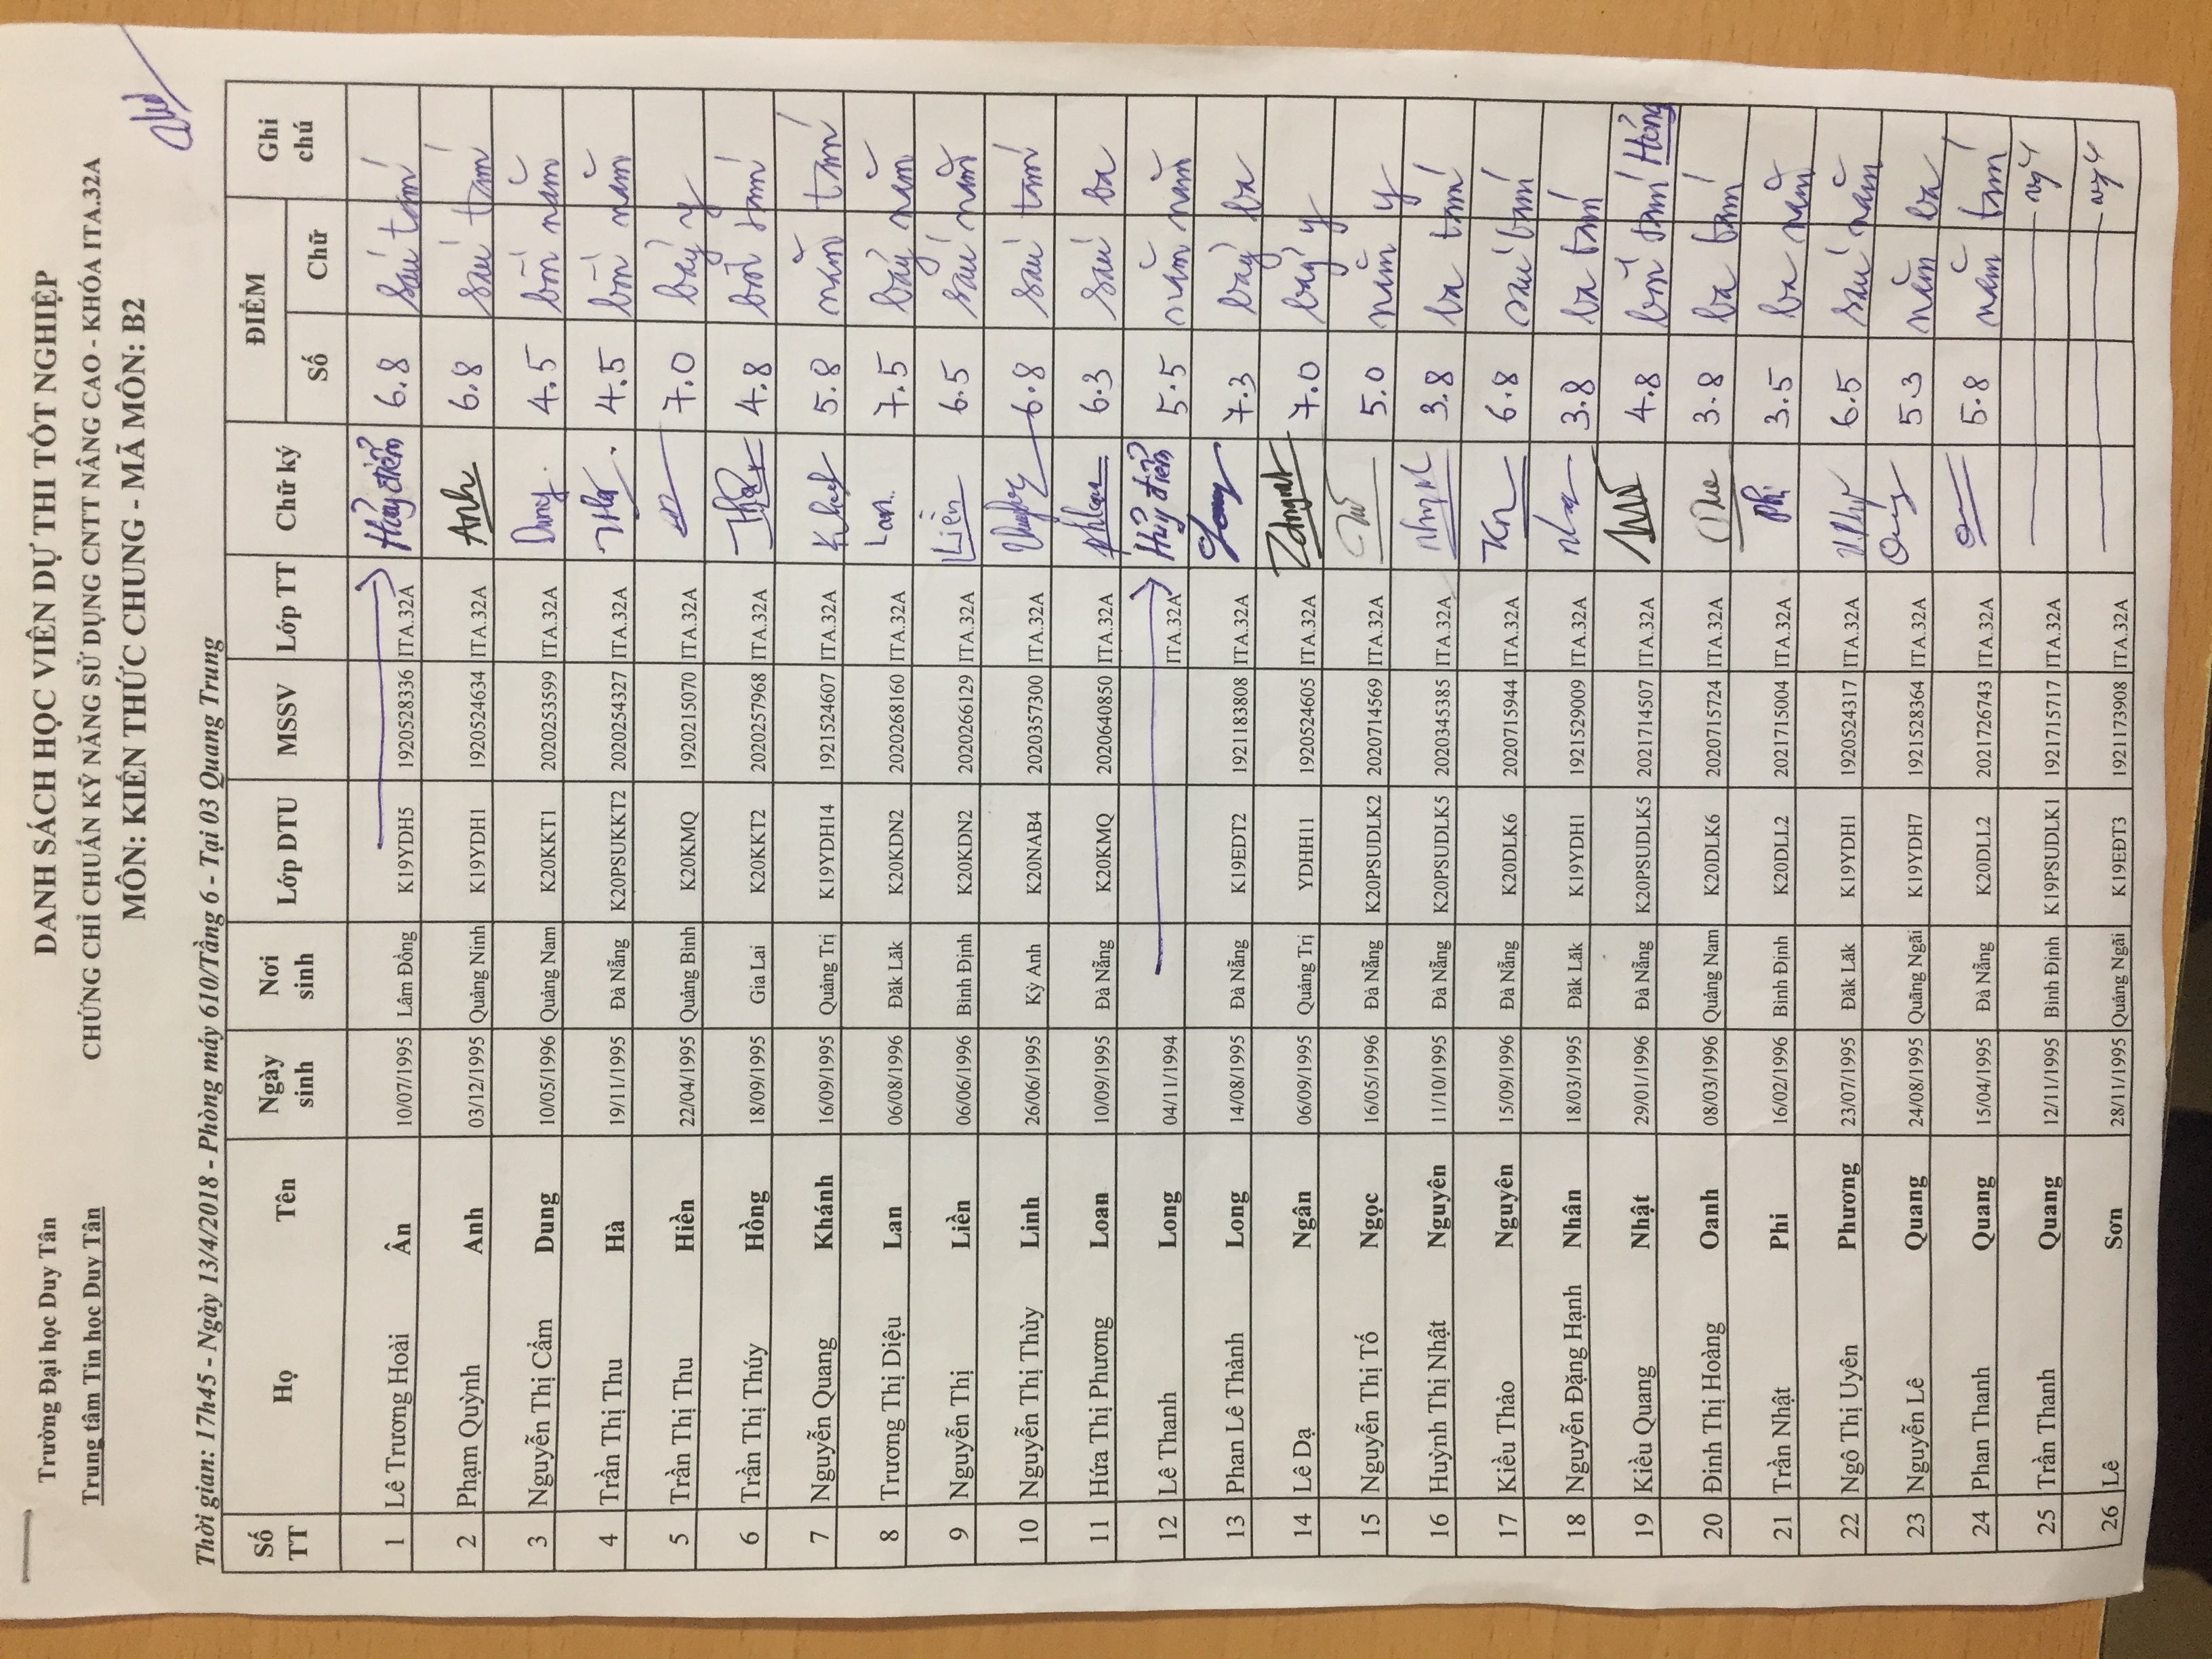 Trường Đại học Duy Tân
Trung tâm Tin học Duy Tân
DANH SÁCH HỌC VIÊN DỰ THI TỐT NGHIỆP
CHỨNG CHỈ CHUẨN KỸ NĂNG SỬ DỤNG CNTT NÂNG CAO - KHÓA ITA.32A
MÔN: KIẾN THỨC CHUNG - MÃ MÔN: B2
Thời gian: 17h45 - Ngày 13/4/2018 - Phòng máy 610/Tầng 6 - Tại 03 Quang Trung
Số TT Họ Tên Ngày sinh Nơi sinh Lớp DTU MSSV Lớp TT Chữ ký ĐIỂM Ghi chú
Số Chữ
1 Lê Trương Hoài Ân 10/07/1995 Lâm Đồng K19YDH5 1920528336 ITA.32A Hủy điểm 6.8 sáu tám
2 Phạm Quỳnh Anh 03/12/1995 Quảng Ninh K19YDH1 1920524634 ITA.32A Anh 6.8 sáu tám
3 Nguyễn Thị Cẩm Dung 10/05/1996 Quảng Nam K20KKT1 2020253599 ITA.32A Dung 4.5 bốn năm
4 Trần Thị Thu Hà 19/11/1995 Đà Nẵng K20PSUKKT2 2020254327 ITA.32A 4.5 bốn năm
5 Trần Thị Thu Hiền 22/04/1995 Quảng Bình K20KMQ 1920215070 ITA.32A 7.0 bảy y
6 Trần Thị Thúy Hồng 18/09/1995 Gia Lai K20KKT2 2020257968 ITA.32A 4.8 bốn tám
7 Nguyễn Quang Khánh 16/09/1995 Quảng Trị K19YDH14 1921524607 ITA.32A 5.8 năm tám
8 Trương Thị Diệu Lan 06/08/1996 Đăk Lăk K20KDN2 2020268160 ITA.32A Lan 7.5 bảy năm
9 Nguyễn Thị Liền 06/06/1996 Bình Định K20KDN2 2020266129 ITA.32A Liền 6.5 sáu năm
10 Nguyễn Thị Thùy Linh 26/06/1995 Kỳ Anh K20NAB4 2020357300 ITA.32A 6.8 sáu tám
11 Hứa Thị Phương Loan 10/09/1995 Đà Nẵng K20KMQ 2020640850 ITA.32A 6.3 sáu ba
12 Lê Thanh Long 04/11/1994 ITA.32A Hủy điểm 5.5 năm năm
13 Phan Lê Thành Long 14/08/1995 Đà Nẵng K19EDT2 1921183808 ITA.32A 7.3 bảy ba
14 Lê Dạ Ngân 06/09/1995 Quảng Trị YDHH11 1920524605 ITA.32A 7.0 bảy y
15 Nguyễn Thị Tố Ngọc 16/05/1996 Đà Nẵng K20PSUDLK2 2020714569 ITA.32A 5.0 năm y
16 Huỳnh Thị Nhật Nguyên 11/10/1995 Đà Nẵng K20PSUDLK5 2020345385 ITA.32A 3.8 ba tám
17 Kiều Thảo Nguyên 15/09/1996 Đà Nẵng K20DLK6 2020715944 ITA.32A 6.8 sáu tám
18 Nguyễn Đặng Hạnh Nhân 18/03/1995 Đăk Lăk K19YDH1 1921529009 ITA.32A 3.8 ba tám
19 Kiều Quang Nhật 29/01/1996 Đà Nẵng K20PSUDLK5 2021714507 ITA.32A 4.8 bốn tám Hỏng
20 Đinh Thị Hoàng Oanh 08/03/1996 Quảng Nam K20DLK6 2020715724 ITA.32A 3.8 ba tám
21 Trần Nhật Phi 16/02/1996 Bình Định K20DLL2 2021715004 ITA.32A Phi 3.5 ba năm
22 Ngô Thị Uyên Phương 23/07/1995 Đăk Lăk K19YDH1 1920524317 ITA.32A 6.5 sáu năm
23 Nguyễn Lê Quang 24/08/1995 Quảng Ngãi K19YDH7 1921528364 ITA.32A 5.3 năm ba
24 Phan Thanh Quang 15/04/1995 Đà Nẵng K20DLL2 2021726743 ITA.32A 5.8 năm tám
25 Trần Thanh Quang 12/11/1995 Bình Định K19PSUDLK1 1921715717 ITA.32A
26 Lê Sơn 28/11/1995 Quảng Ngãi K19EĐT3 1921173908 ITA.32A